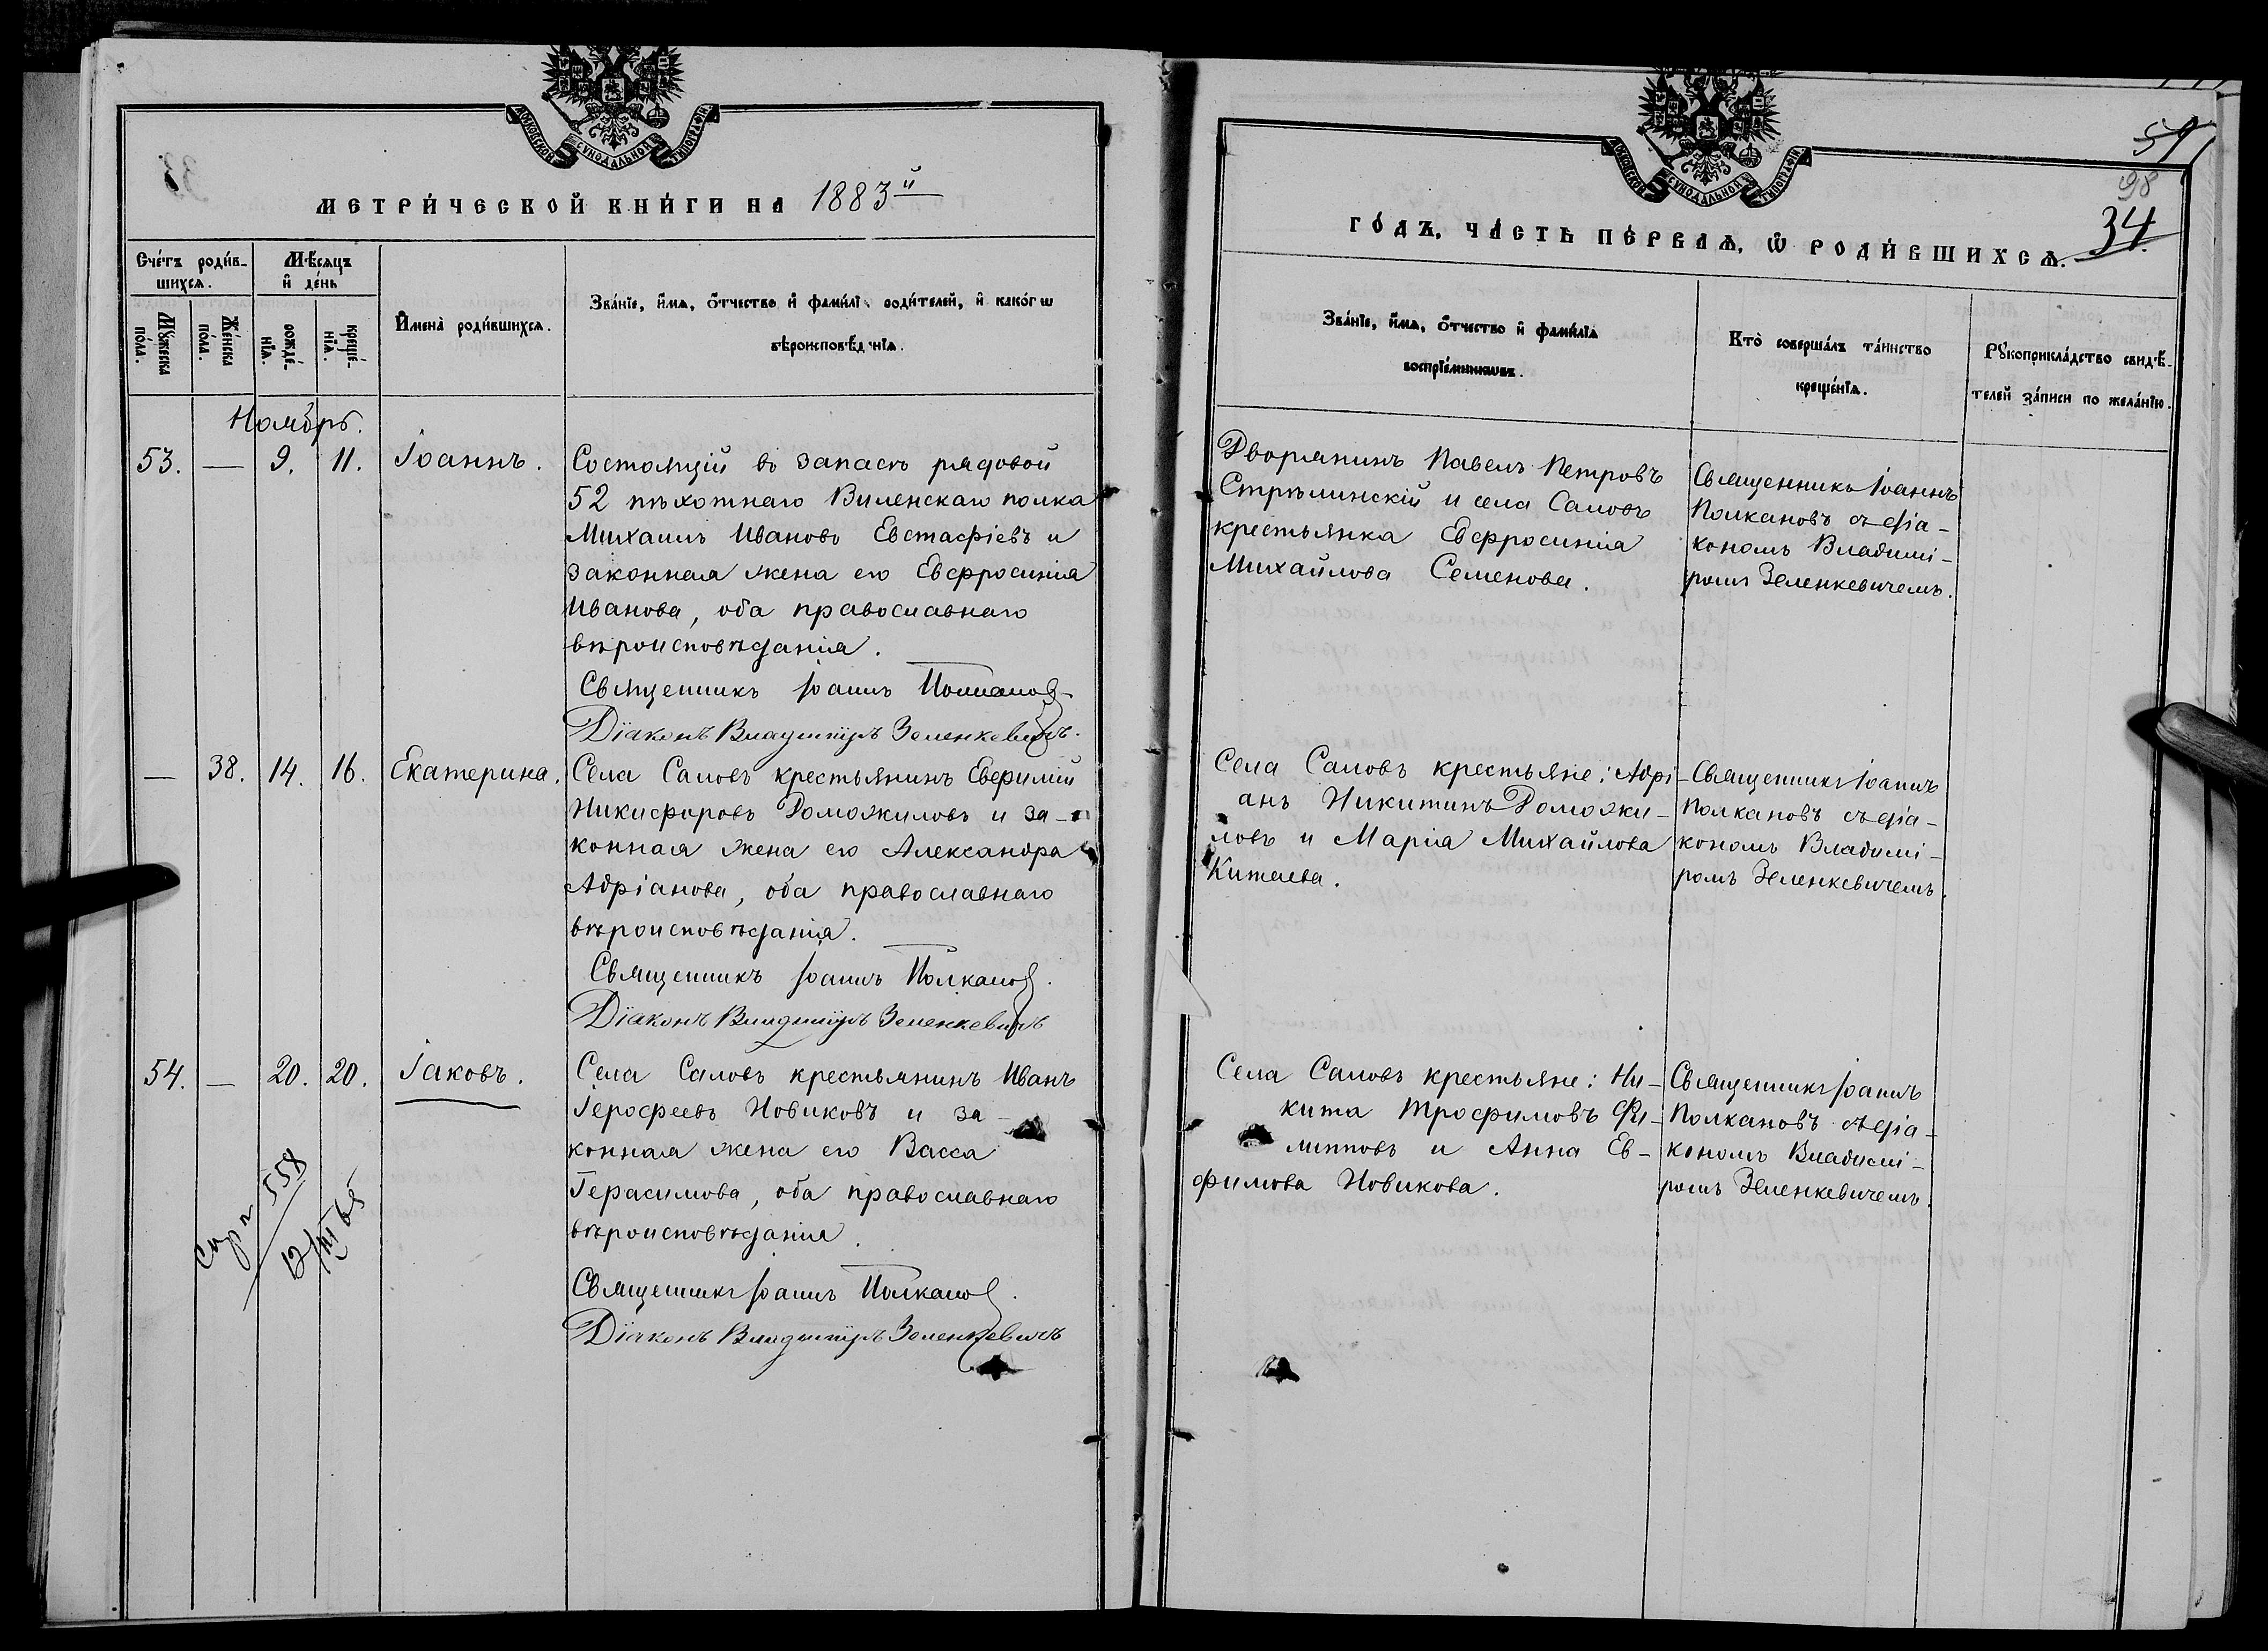 МОСКОВСКОЙ СУНОДАЛЬНОЙ ТИПОГРАФІИ
МЕТРИ́ЧЕСКОЙ КНИ́ГИ НА 1883й
Сче́тъ роди́в-
шихся.
Мѣ́сяцъ
и҆ де́нь
Мꙋ́жеска
по́ла.
Же́нска
по́ла.
рожде́-
нїѧ.
креще́-
нїѧ.
И҆мена̀ роди́вшихсѧ.
Зва́нїе, и҆́мѧ, ѻ҆́тчество и҆ фами́лї роди́телей, и҆ како́гѡ
вѣроисповѣ́д нїѧ.
Ноябрь.
53. — 9. 11. Іоаннъ.
Состоящій въ запасѣ рядовой
52 пѣхотнаго Виленскаго полка
Михаилъ Ивановъ Евстафіевъ и
законная жена его Евфросинія
Иванова, оба православнаго
вѣроисповѣданія.
Священникъ Іоаннъ Полкановъ
Діаконъ Владиміръ Зеленкевичъ.
— 38. 14. 16. Екатерина.
Села Саловъ крестьянинъ Евфимій
Никифоровъ Доможиловъ и за-
конная жена его Александра
Адріанова, оба православнаго
вѣроисповѣданія.
Священникъ Іоаннъ Полкановъ.
Діаконъ Владиміръ Зеленкевичъ
54. — 20. 20. Іаковъ.
Села Саловъ крестьянинъ Иванъ
Іерофеевъ Новиковъ и за-
конная жена его Васса
Герасимова, оба православнаго
вѣроисповѣданія.
Священникъ Іоаннъ Полкановъ.
Діаконъ Владиміръ Зеленкевичъ
558
12/XI 65
МОСКОВСКОЙ СУНОДАЛЬНОЙ ТИПОГРАФІИ
51
98
34.
ГО́ДЪ, ЧА́СТЬ ПЕ́РВАѦ, Ѡ҆ РОДИ́ВШИХСѦ.
Зва́нїе, и҆́мѧ, ѻ҆́тчество и҆ фами́лїѧ
воспрїе́мникѡвъ.
Кто̀ соверша́лъ та́инство
креще́нїѧ.
Рꙋкоприкла́дство свидѣ́-
телей за́писи по жела́нїю.
Дворянинъ Павелъ Петровъ
Стрѣлинскій и села Саловъ
крестьянка Евфросинія
Михайлова Семенова.
Священникъ Іоаннъ
Полкановъ съ діа-
кономъ Владимі-
ромъ Зеленкевичемъ.
Села Саловъ крестьяне: Адрі-
анъ Никитинъ Доможи-
ловъ и Марія Михайлова
Китаева.
Священникъ Іоаннъ
Полкановъ съ діа-
кономъ Владимі-
ромъ Зеленкевичемъ.
Села Саловъ крестьяне: Ни-
кита Трофимовъ Фи-
липповъ и Анна Ев-
фимова Новикова.
Священникъ Іоаннъ
Полкановъ съ діа-
кономъ Владимі-
ромъ Зеленкевичемъ.